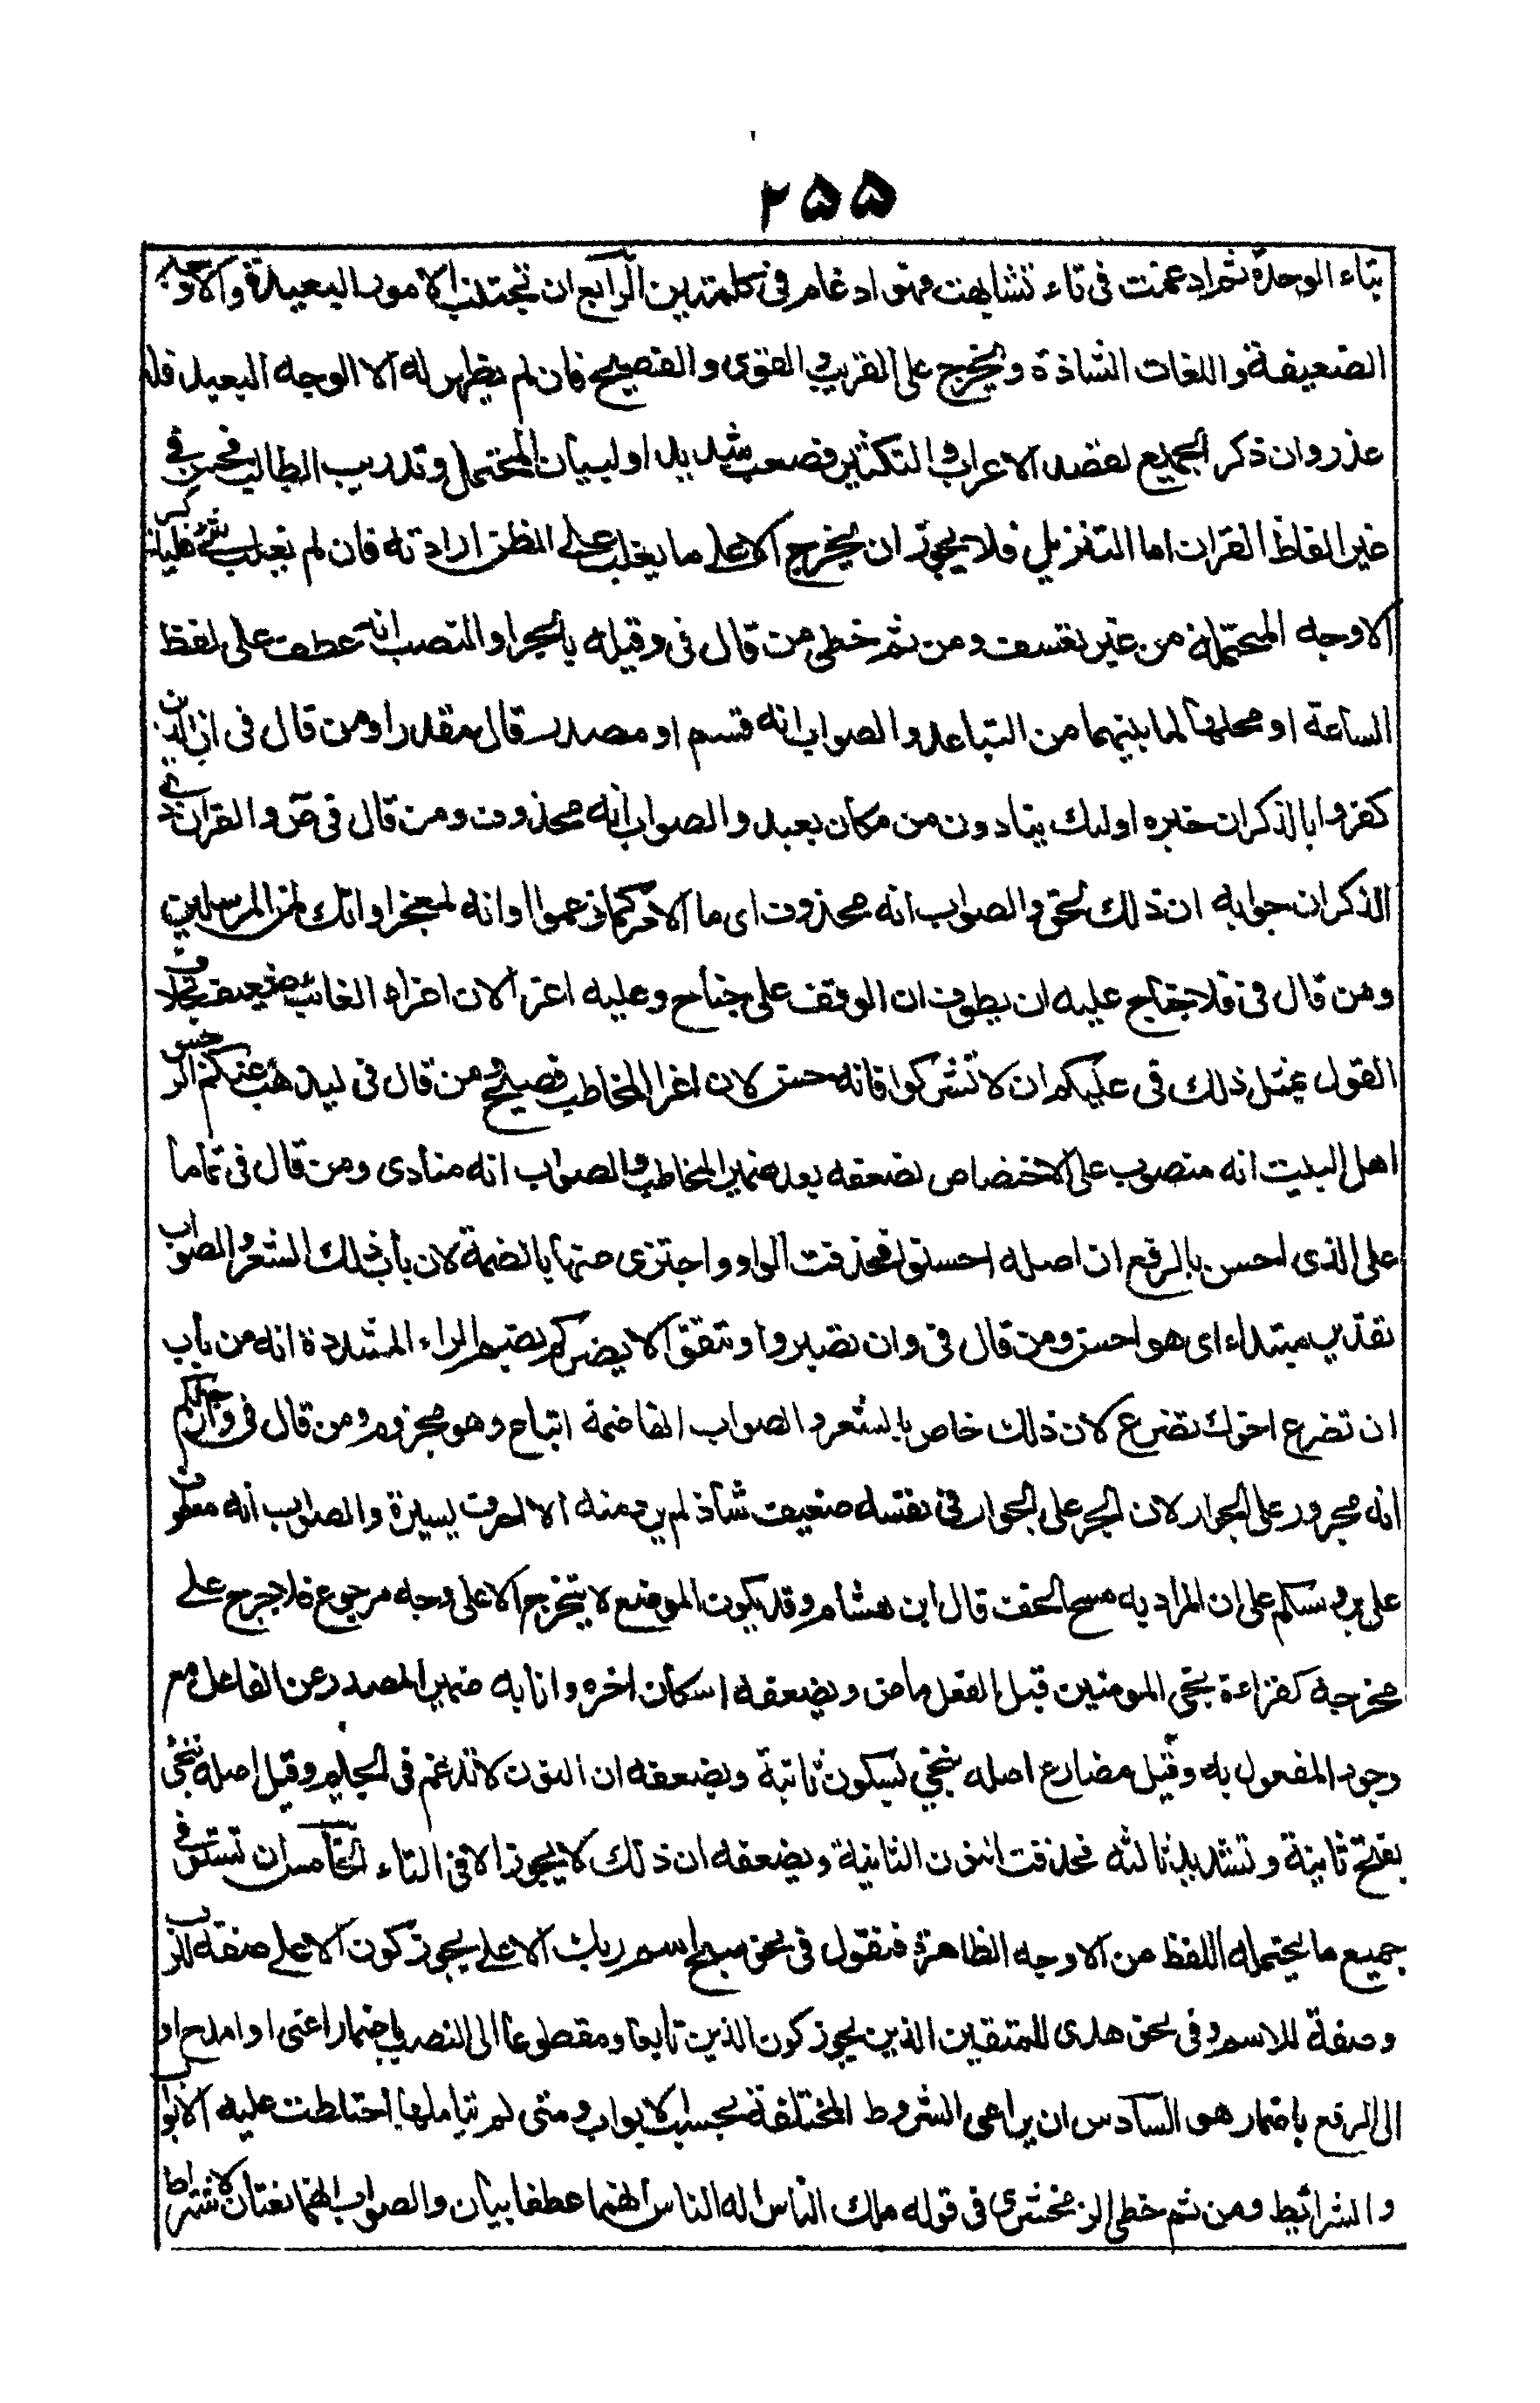 ۲۵۵
بتاء الوحدة ثم ادغمت فى تاء تشابهت فهو ادغام فى كلمتين الرابع ان تجتنب الامور البعيدة والاوجه
الضعيفة واللغات الشاذة ويخرج على القريب والقوى والفصيح فان لم يظهر له الا الوجه البعيد فله
عذر وان ذكر الجميع لقصد الاعراب والتكثير فصعب شديد او لبيان المحتمل وتدريب الطالب فحسن فى
غير الفاظ القران اما التنزيل فلا يجوز ان يخرج الا على ما يغلب على الظن ارادته فان لم يغلب شئ فليذكر
الاوجه المحتملة من غير تعسف ومن ثم خطئ من قال فى وقيله بالجر او النصب انه عطف على لفظ
الساعة او محلها لما بينهما من التباعد والصواب انه قسم او مصدر قال مقدرا ومن قال فى ان الذين
كفروا بالذكر ان خبره اولئك ينادون من مكان بعيد والصواب انه محذوف ومن قال فى ص والقران ذى
الذكر ان جوابه ان ذلك لحق والصواب انه محذوف اى ما الامر كما زعموا او انه لمعجز او انك لمن المرسلين
ومن قال فى فلا جناح عليه ان يطوف ان الوقف على جناح وعليه اغراء لان اغراء الغائب ضعيف بخلاف
القول بمثل ذلك فى عليكم ان لا تشركوا فانه حسن لان اغرا المخاطب فصيح ومن قال فى ليذهب عنكم الرجس
اهل البيت انه منصوب على الاختصاص لضعفه بعد ضمير المخاطب والصواب انه منادى ومن قال فى تماما
على الذى احسن بالرفع ان اصله احسنوا فحذفت الواو واجتزى عنها بالضمة لان باب ذلك الشعر والصواب
تقدير مبتداء اى هو احسن ومن قال فى وان تصبروا وتتقوا لا يضركم بضم الراء المشددة انه من باب
ان تصرع اخوك تصرع لان ذلك خاص بالشعر والصواب انها ضمة اتباع وهو مجزوم ومن قال فى وارجلكم
انه مجرور على الجوار لان الجر على الجوار فى نفسه ضعيف شاذ لم يرد منه الا احرف يسيرة والصواب انه معطوف
على برؤسكم على ان المراد به مسح الخف قال ابن هشام وقد يكون الموضع لا يتخرج الا على وجه مرجوح فلا حرج على
مخرجه كقراءة نجى المومنين قيل الفعل ماض ويضعفه اسكان اخره وانابه ضمير المصدر عن الفاعل مع
وجود المفعول به وقيل مضارع اصله ننجى بسكون ثانية ويضعفه ان النون لا تدغم فى الجيم وقيل اصله ننجى
بفتح ثانية وتشديد ثالثه فحذفت النون الثانية ويضعفه ان ذلك لا يجوز الا فى التاء الخامس ان تستوفى
جميع ما يحتمله اللفظ من الاوجه الظاهرة فنقول فى نحو سبح اسم ربك الاعلى يجوز كون الاعلى صفة للرب
وصفة للاسم وفى نحو هدى للمتقين الذين يجوز كون الذين تابعا ومقطوعا الى النصب باضمار اعنى او امدح او
الى الرفع باضمار هو السادس ان يراعى الشروط المختلفة بحسب الابواب ومتى لم يتاملها اختلطت عليه الابواب
والشرائط ومن ثم خطئ الزمخشرى فى قوله ملك الناس اله الناس انهما عطفا بيان والصواب انهما نعتان لاشتراط